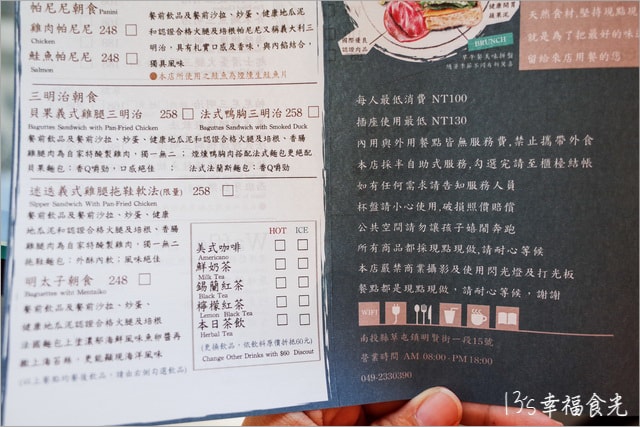 帕尼尼朝食 Panini
雞肉帕尼尼 248
Chicken
鮭魚帕尼尼 248
Salmon
餐前飲品及餐前沙拉、炒蛋、健康地瓜泥
和認證合格火腿及培根帕尼尼又稱義大利三
明治，具有扎實口感及香味，與內餡結合，
獨具風味
●本店所使用之鮭魚為煙燻生鮭魚片
三明治朝食
貝果義式雞腿三明治 258
Baguttes Sandwich with Pan-Fried Chicken
法式鴨胸三明治 258
Baguettes Sandwich with Smoked Duck
餐前飲品及餐前沙拉、炒蛋、健康地瓜泥和認證合格火腿及培根、香腸
雞腿肉為自家特醃製雞肉，獨一無二；煙燻鴨胸肉搭配法式麵包更絕配
貝果麵包：香Q嚼勁，口感絕佳 ； 法式法蘭斯麵包：香Q嚼勁
迷迭義式雞腿拖鞋軟法(限量) 258
Slipper Sandwich With Pan-Fried Chicken
餐前飲品及餐前沙拉、炒蛋、健康
地瓜泥和認證合格火腿及培根、香腸
雞腿肉為自家特醃製雞肉，獨一無二
拖鞋麵包：外酥內軟；風味絕佳
明太子朝食 248
Baguettee with Mentaiko
餐前飲品及餐前沙拉、炒蛋、
健康地瓜泥認證合格火腿及培根
法國麵包上塗濃郁海鮮風味魚卵醬再
撒上海苔絲，更能顯現海洋風味
(以上餐點均餐後飲品，請由右側勾選飲品)
HOT ICE
美式咖啡
Americano
鮮奶茶
Milk Tea
錫蘭紅茶
Black Tea
檸檬紅茶
Lemon Black Tea
本日茶飲
Herbal Tea
(更換飲品，依飲料原價折抵60元)
Change Other Drinks with $60 Discout
國際優良
認證肉品
健康開胃
蘋果泥
BRUNCH
天然食材,堅持現點現
就是為了把最好的
留給來店用餐的您
每人最低消費 NT100
插座使用最低 NT130
內用與外用餐點皆無服務費,禁止攜帶外食
本店採半自助式服務,勾選完請至櫃檯結帳
如有任何需求請告知服務人員
杯盤請小心使用,破損照價賠償
公共空間請勿讓孩子嬉鬧奔跑
所有商品都採現點現做,請耐心等候
本店嚴禁商業攝影及使用閃光燈及打光板
餐點都是現點現做，請耐心等候，謝謝
WIFI
南投縣草屯鎮明賢街一段15號
營業時間 AM 08:00 - PM 18:00
049-2330390
13's幸福食光